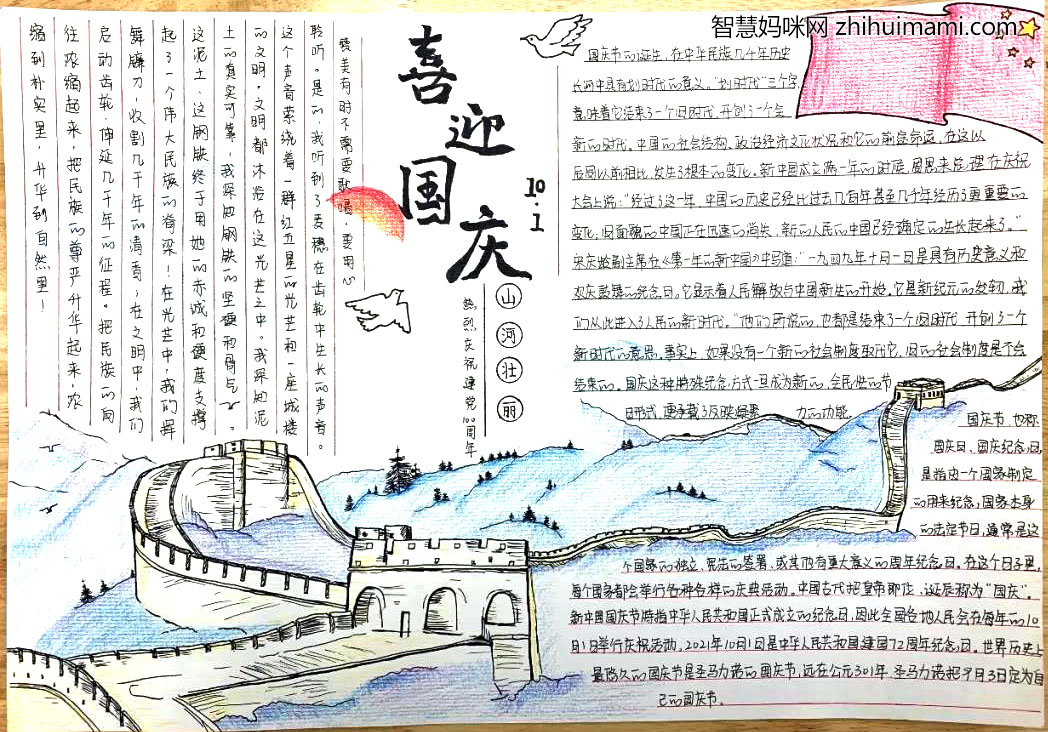 智慧妈咪网 zhihuimami.com
喜迎国庆
10.1
山河壮丽
热烈庆祝建党100周年
赞美有时不需要歌唱,要用心
聆听。是的,我听到了麦穗在齿轮中生长的声音。
这个声音萦绕着一群红五星的光芒和一座城楼
的文明,文明都沐浴在这光芒之中。我深知泥
土的真实可靠,我深知钢铁的坚硬和骨气。
这泥土、这钢铁终于用她的赤诚和硬度支撑
起了一个伟大民族的脊梁!在光芒中,我们挥
舞镰刀,收割几千年的清香;在文明中,我们
启动齿轮,伸延几千年的征程。把民族的向
往浓缩起来,把民族的尊严升华起来,浓
缩到朴实里,升华到自然里!
国庆节的诞生,在中华民族几千年历史
长河中具有划时代的意义。"划时代"三个字
意味着它结束了一个旧时代,开创了一个全
新的时代。中国的社会结构、政治经济文化状况和它的前途命运,在这以
后同以前相比,发生了根本的变化。新中国成立满一年的时候,周恩来总理在庆祝
大会上说:"经过了这一年,中国的历史已经比过去几百年甚至几千年经历了更重要的
变化;旧面貌的中国正在迅速的消失,新的人民的中国已经确定的生长起来了。"
宋庆龄副主席在《第一年的新中国》中写道:"一九四九年十月一日是具有历史意义和
欢庆鼓舞的纪念日。它显示着人民解放与中国新生的开始。它是新纪元的发轫,我
们从此进入了人民的新时代。"他们所说的,也都是结束了一个旧时代,开创了一个
新时代的意思。事实上,如果没有一个新的社会制度取代它,旧的社会制度是不会
结束的。国庆这种特殊纪念方式一旦成为新的、全民性的节
日形式,便承载了反映 力的功能.
国庆节,也称
国庆日、国庆纪念日,
是指由一个国家制定
的用来纪念国家本身
的法定节日,通常是这
个国家的独立、宪法的签署、或其他有重大意义的周年纪念日。在这个日子里,
每个国家都会举行各种各样的庆典活动。中国古代把皇帝即位、诞辰称为"国庆"。
新中国国庆节特指中华人民共和国正式成立的纪念日,因此全国各地人民会在每年的10
月1日举行庆祝活动,2021年10月1日是中华人民共和国建国72周年纪念日。世界历史上
最悠久的国庆节是圣马力诺的国庆节,远在公元301年,圣马力诺把9月3日定为自
己的国庆节。